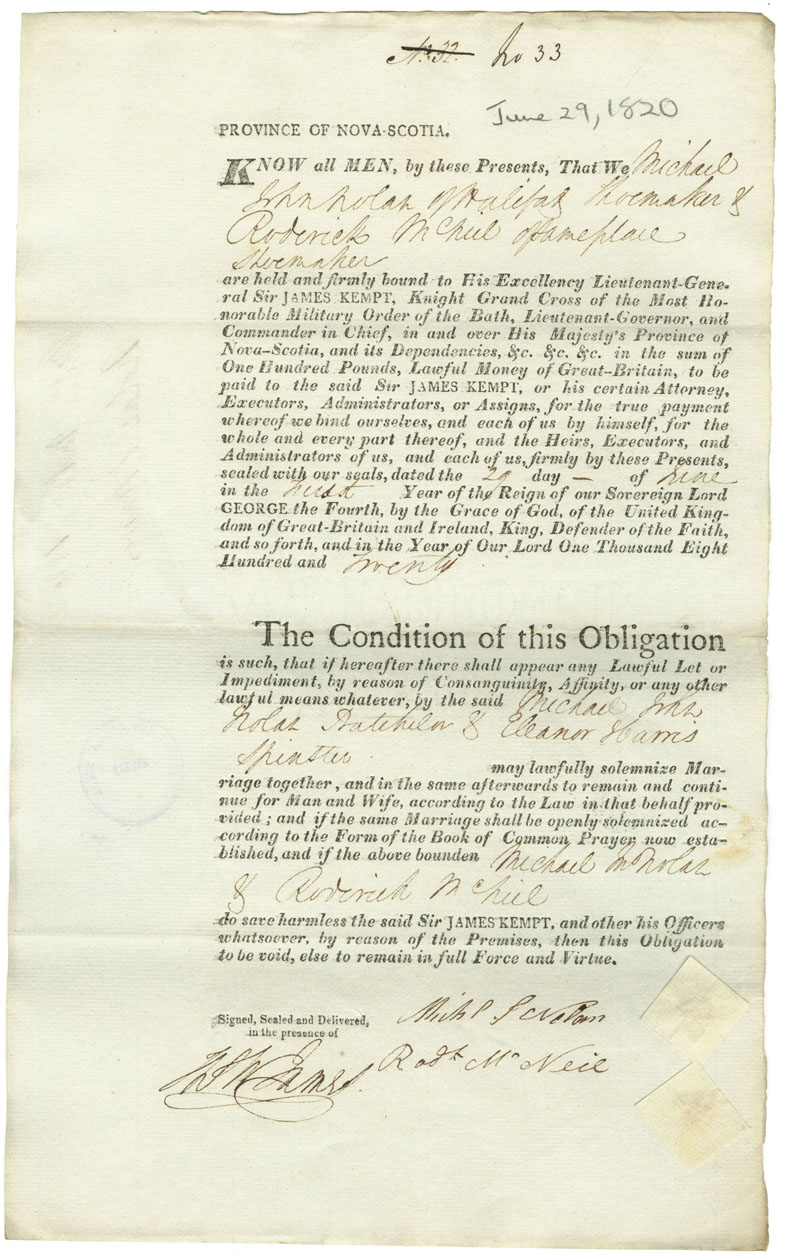 No. 32. No 33
June 29, 1820
PROVINCE OF NOVA-SCOTIA.
KNOW all MEN, by these Presents, That We Michael
John Nolan of Halifax Shoemaker &
Roderick McNeil of same place
Shoemaker
are held and firmly bound to His Excellency Lieutenant-Gene-
ral Sir JAMES KEMPT, Knight Grand Cross of the Most Ho-
norable Military Order of the Bath, Lieutenant-Governor, and
Commander in Chief, in and over His Majesty's Province of
Nova-Scotia, and its Dependencies, &c. &c. &c. in the sum of
One Hundred Pounds, Lawful Money of Great-Britain, to be
paid to the said Sir JAMES KEMPT, or his certain Attorney,
Executors, Administrators, or Assigns, for the true payment
whereof we bind ourselves, and each of us by himself, for the
whole and every part thereof, and the Heirs, Executors, and
Administrators of us, and each of us, firmly by these Presents,
sealed with our seals, dated the 29 day — of June
in the First Year of the Reign of our Sovereign Lord
GEORGE the Fourth, by the Grace of God, of the United King-
dom of Great-Britain and Ireland, King, Defender of the Faith,
and so forth, and in the Year of Our Lord One Thousand Eight
Hundred and Twenty.
The Condition of this Obligation
is such, that if hereafter there shall appear any Lawful Let or
Impediment, by reason of Consanguinity, Affinity, or any other
lawful means whatever, by the said Michael John
Nolan Batchelor & Eleanor Harris
Spinster
may lawfully solemnize Mar-
riage together, and in the same afterwards to remain and conti-
nue for Man and Wife, according to the Law in that behalf pro-
vided; and if the same Marriage shall be openly solemnized ac-
cording to the Form of the Book of Common Prayer, now esta-
blished, and if the above bounden Michael Jn Nolan
& Roderick McNeil
do save harmless the said Sir JAMES KEMPT, and other his Officers
whatsoever, by reason of the Premises, then this Obligation
to be void, else to remain in full Force and Virtue.
Signed, Sealed and Delivered,
in the presence of
Michl J Nolan
Rodk McNeil
James